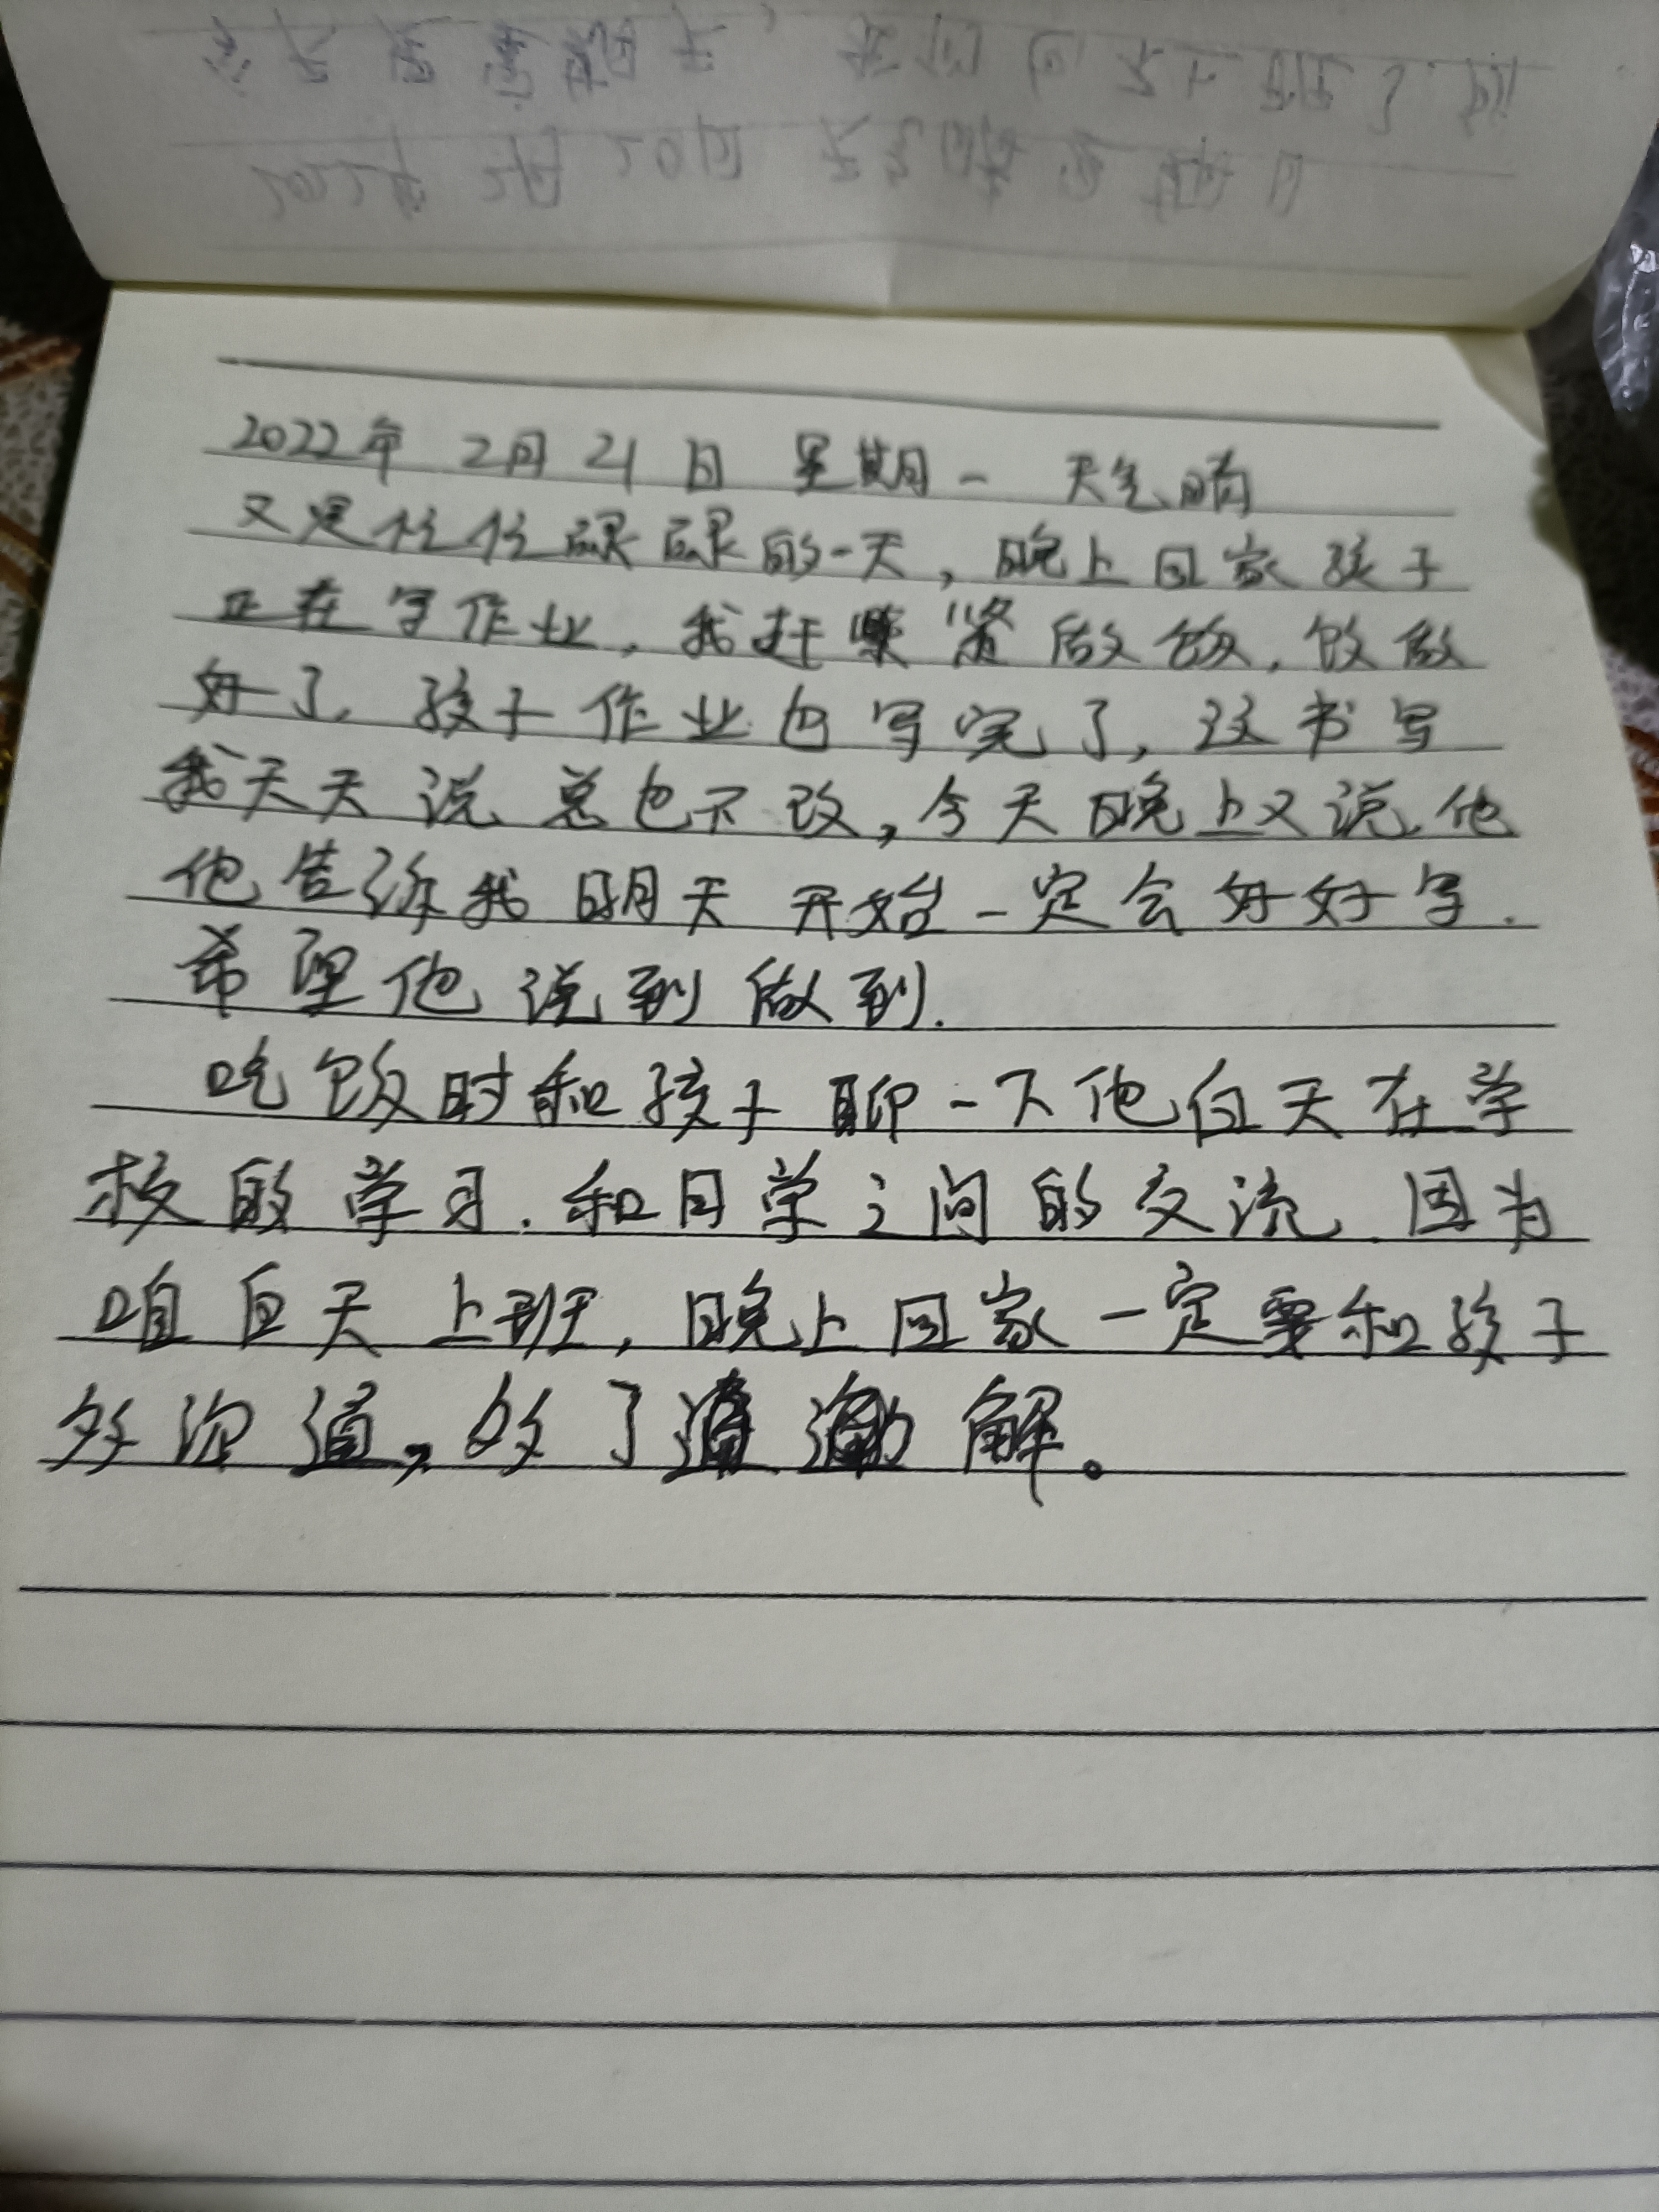 2022年 2月 21日 星期一 天气晴
又是忙忙碌碌的一天，晚上回家孩子
正在写作业，我赶紧做饭，饭做
好了，孩子作业也写完了，这书写
我天天说总也不改，今天晚上又说他
他告诉我明天开始一定会好好写.
希望他说到做到.
吃饭时和孩子聊一下他白天在学
校的学习.和同学之间的交流.因为
咱白天上班，晚上回家一定要和孩子
多沟通，多了解。